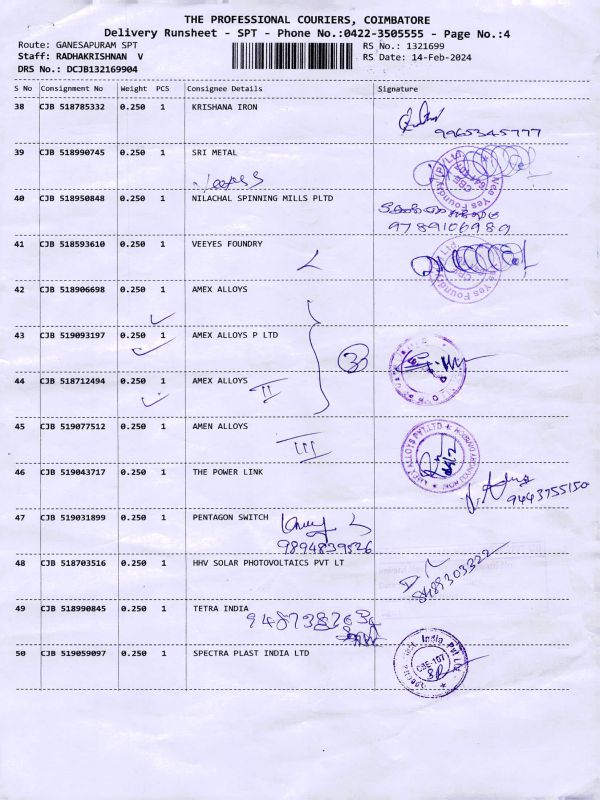 THE PROFESSIONAL COURIERS, COIMBATORE
Delivery Runsheet - SPT - Phone No.:0422-3505555 - Page No.:4
Route: GANESAPURAM SPT
Staff: RADHAKRISHNAN V
DRS No.: DCJB132169904
RS No.: 1321699
RS Date: 14-Feb-2024
S No Consignment No Weight PCS Consignee Details Signature
38 CJB 518785332 0.250 1 KRISHANA IRON
9965345777
39 CJB 518990745 0.250 1 SRI METAL
Nee Yes Foundry (P) Ltd
40 CJB 518950848 0.250 1 NILACHAL SPINNING MILLS PLTD
9789106989
41 CJB 518593610 0.250 1 VEEYES FOUNDRY
Nee Yes Foundry (P) Ltd
42 CJB 518906698 0.250 1 AMEX ALLOYS
43 CJB 519093197 0.250 1 AMEX ALLOYS P LTD
44 CJB 518712494 0.250 1 AMEX ALLOYS II
45 CJB 519077512 0.250 1 AMEN ALLOYS
III
46 CJB 519043717 0.250 1 THE POWER LINK
9443755150
47 CJB 519031899 0.250 1 PENTAGON SWITCH
9894839526
48 CJB 518703516 0.250 1 HHV SOLAR PHOTOVOLTAICS PVT LT
8489303322
49 CJB 518990845 0.250 1 TETRA INDIA
50 CJB 519059097 0.250 1 SPECTRA PLAST INDIA LTD
India Pvt Ltd
CBE-107